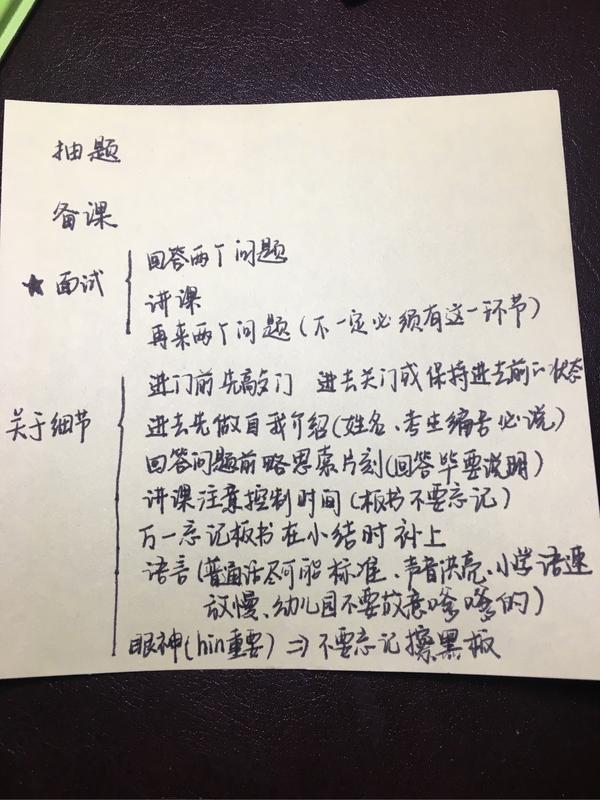 抽题
备课
★面试
回答两个问题
讲课
再来两个问题(不一定必须有这一环节)
关于细节
进门前先敲门 进去关门或保持进去前的状态
进去先做自我介绍(姓名、考生编号必说)
回答问题前略思索片刻(回答毕要说明)
讲课注意控制时间(板书不要忘记)
万一忘记板书在小结时补上
语言(普通话尽可能标准、声音洪亮、小学语速
放慢、幼儿园不要故意嗲嗲的)
眼神(hin重要)⇒不要忘记擦黑板